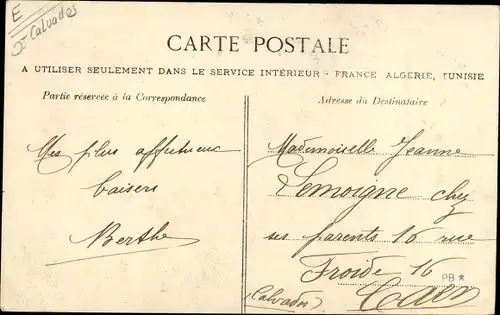 E
Calvados
CARTE POSTALE
A UTILISER SEULEMENT DANS LE SERVICE INTÉRIEUR - FRANCE ALGERIE, TUNISIE
Partie réservée à la Correspondance
Adresse du Destinataire
Mes plus affectueux
baisers
Berthe
Mademoiselle Jeanne
Lemoigne chez
ses parents 16 rue
Froide 16
PB
(Calvados) Caen